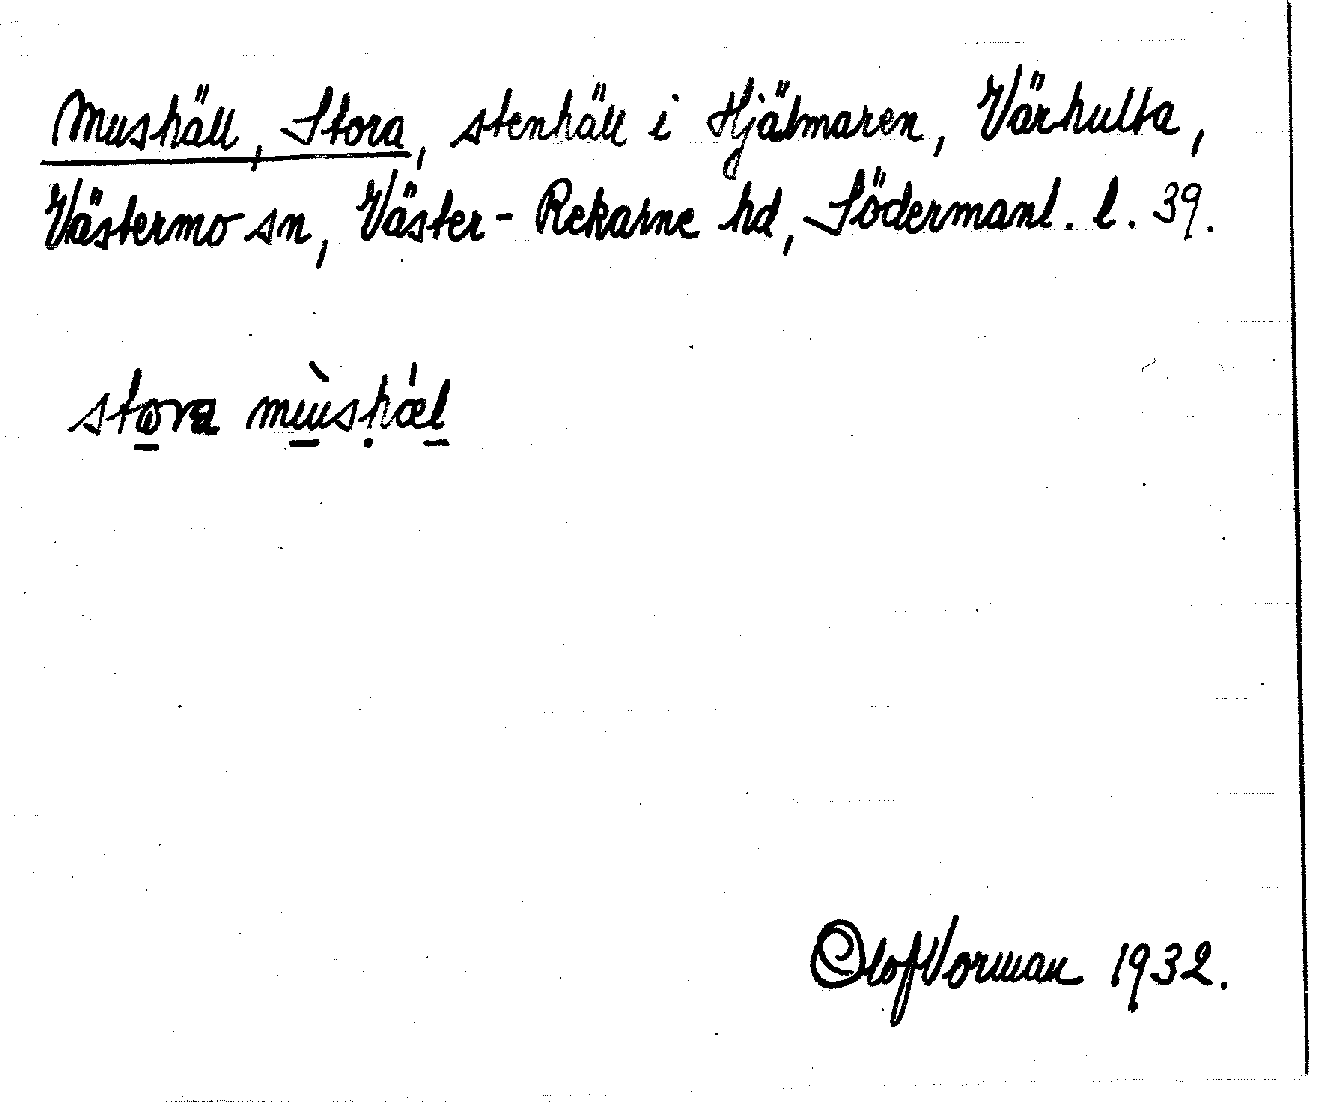 Mushäll, Stora, stenhäll i Hjälmaren, Värhulta,
Västermo sn, Väster-Rekarne hd, Södermanl. l. 39.
stora mùshǽl
Olof Vorman 1932.